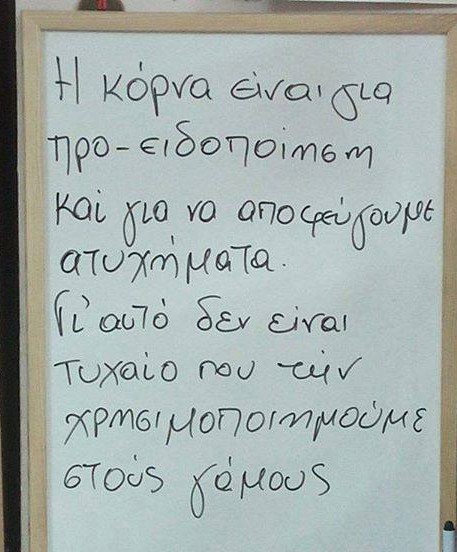 Η κόρνα είναι για
προ-ειδοποίηση
και για να αποφεύγουμε
ατυχήματα.
Γι' αυτό δεν είναι
τυχαίο που την
χρησιμοποιημούμε
στούς γάμους